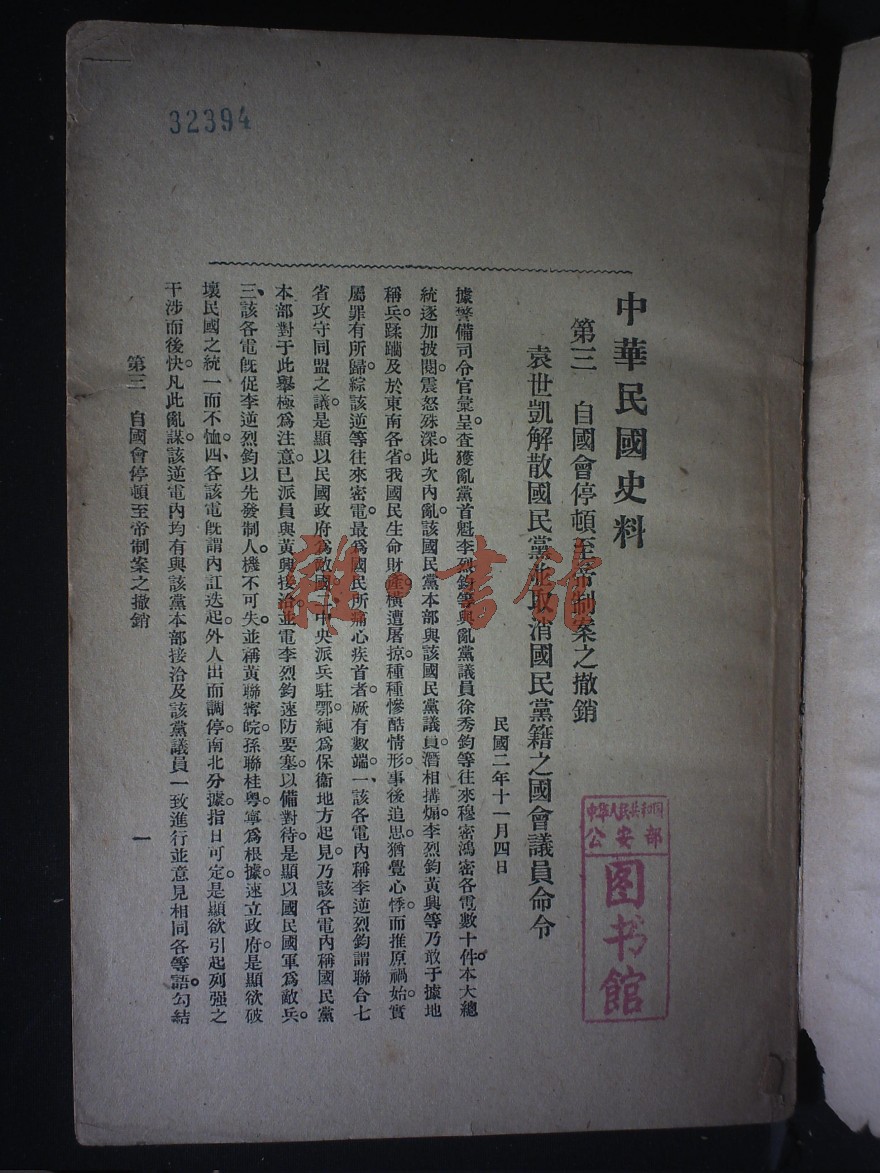 32394
中華民國史料
第三　自國會停頓至帝制案之撤銷
袁世凱解散國民黨並取消國民黨籍之國會議員命令
民國二年十一月四日
據警備司令官彙呈。查獲亂黨首魁李烈鈞等與亂黨議員徐秀鈞等往來穆密鴻密各電數十件。本大總
統逐加披閱。震怒殊深。此次內亂。該國民黨本部與該國民黨議員潛相搆煽。李烈鈞黃興等乃敢于據地
稱兵。蹂躪及於東南各省。我國民生命財產。橫遭屠掠。種種慘酷情形。事後追思。猶覺心悸。而推原禍始。實
屬罪有所歸。綜該逆等往來密電。最爲國民所痛心疾首者。厥有數端。一、該各電內稱李逆烈鈞謂聯合七
省攻守同盟之議。是顯以民國政府爲敵國。二、中央派兵駐鄂。純爲保衞地方起見。乃該各電內稱國民黨
本部對于此舉極爲注意。已派員與黃興接洽。並電李烈鈞速防要塞。以備對待。是顯以國民國軍爲敵兵。
三、該各電旣促李逆烈鈞以先發制人。機不可失。並稱黃聯寗皖。孫聯桂粵。寧爲根據。速立政府。是顯欲破
壞民國之統一而不恤。四、各該電旣謂內訌迭起。外人出而調停。南北分據。指日可定。是顯欲引起列强之
干涉而後快。凡此亂謀。該逆電內均有與該黨本部接洽及該黨議員一致進行並意見相同各等語。勾結
第三　自國會停頓至帝制案之撤銷
一
中华人民共和国
公安部
图书馆
雜·書館